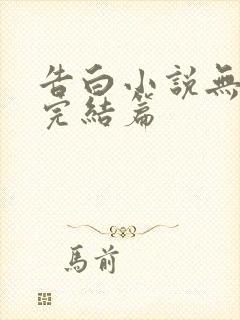 告白小說無
完結篇
馬前